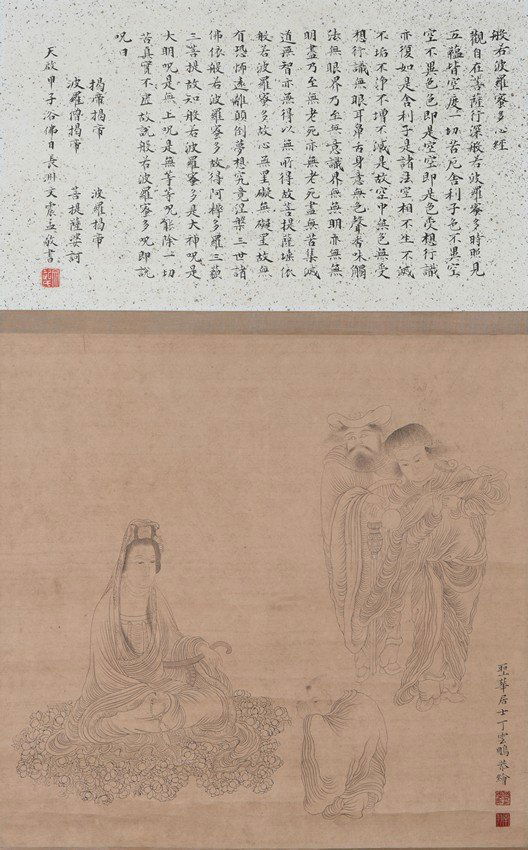 般若波羅蜜多心經
觀自在菩薩行深般若波羅蜜多時照見
五蘊皆空度一切苦厄舍利子色不異空
空不異色色即是空空即是色受想行識
亦復如是舍利子是諸法空相不生不滅
不垢不淨不增不減是故空中無色無受
想行識無眼耳鼻舌身意無色聲香味觸
法無眼界乃至無意識界無無明亦無無
明盡乃至無老死亦無老死盡無苦集滅
道無智亦無得以無所得故菩提薩埵依
般若波羅蜜多故心無罣礙無罣礙故無
有恐怖遠離顛倒夢想究竟涅槃三世諸
佛依般若波羅蜜多故得阿耨多羅三藐
三菩提故知般若波羅蜜多是大神呪是
大明呪是無上呪是無等等呪能除一切
苦真實不虛故說般若波羅蜜多呪即說
呪曰
揭帝揭帝 波羅揭帝
波羅僧揭帝 菩提薩婆訶
天啟甲子浴佛日長洲文震孟敬書
聖華居士丁雲鵬恭繪